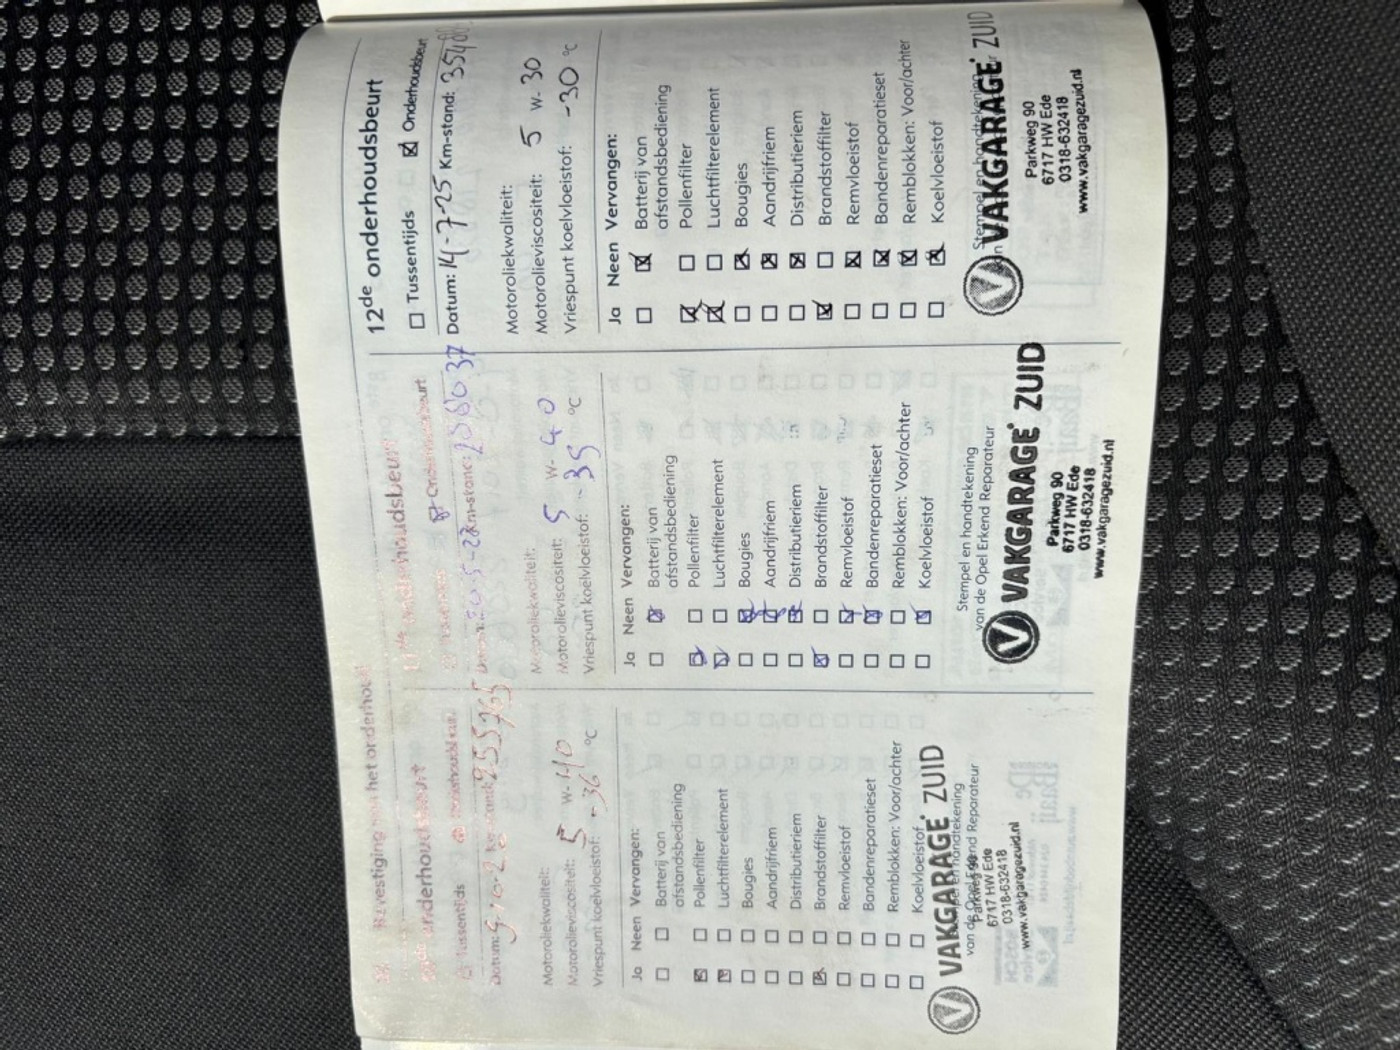 Bevestiging van het onderhoud
onderhoudsbeurt
Tussentijds
Datum:
255765
Motoroliekwaliteit:
Motorolieviscositeit: 5 W- 40
Vriespunt koelvloeistof: -36 °C
Ja Neen Vervangen:
Batterij van
afstandsbediening
Pollenfilter
Luchtfilterelement
Bougies
Aandrijfriem
Distributieriem
Brandstoffilter
Remvloeistof
Bandenreparatieset
Remblokken: Voor/achter
Koelvloeistof
Stempel en handtekening
van de Opel Erkend Reparateur
VAKGARAGE ZUID
Parkweg 90
6717 HW Ede
0318-632418
www.vakgaragezuid.nl
11de onderhoudsbeurt
Onderhoudsbeurt
Km-stand:
Motoroliekwaliteit:
Motorolieviscositeit: 5 W- 40
Vriespunt koelvloeistof: -35 °C
Ja Neen Vervangen:
Batterij van
afstandsbediening
Pollenfilter
Luchtfilterelement
Bougies
Aandrijfriem
Distributieriem
Brandstoffilter
Remvloeistof
Bandenreparatieset
Remblokken: Voor/achter
Koelvloeistof
Stempel en handtekening
van de Opel Erkend Reparateur
VAKGARAGE ZUID
Parkweg 90
6717 HW Ede
0318-632418
www.vakgaragezuid.nl
12de onderhoudsbeurt
Tussentijds Onderhoudsbeurt
Datum: 14-7-25 Km-stand:
Motoroliekwaliteit:
Motorolieviscositeit: 5 W- 30
Vriespunt koelvloeistof: -30 °C
Ja Neen Vervangen:
Batterij van
afstandsbediening
Pollenfilter
Luchtfilterelement
Bougies
Aandrijfriem
Distributieriem
Brandstoffilter
Remvloeistof
Bandenreparatieset
Remblokken: Voor/achter
Koelvloeistof
Stempel en handtekening
VAKGARAGE ZUID
Parkweg 90
6717 HW Ede
0318-632418
www.vakgaragezuid.nl